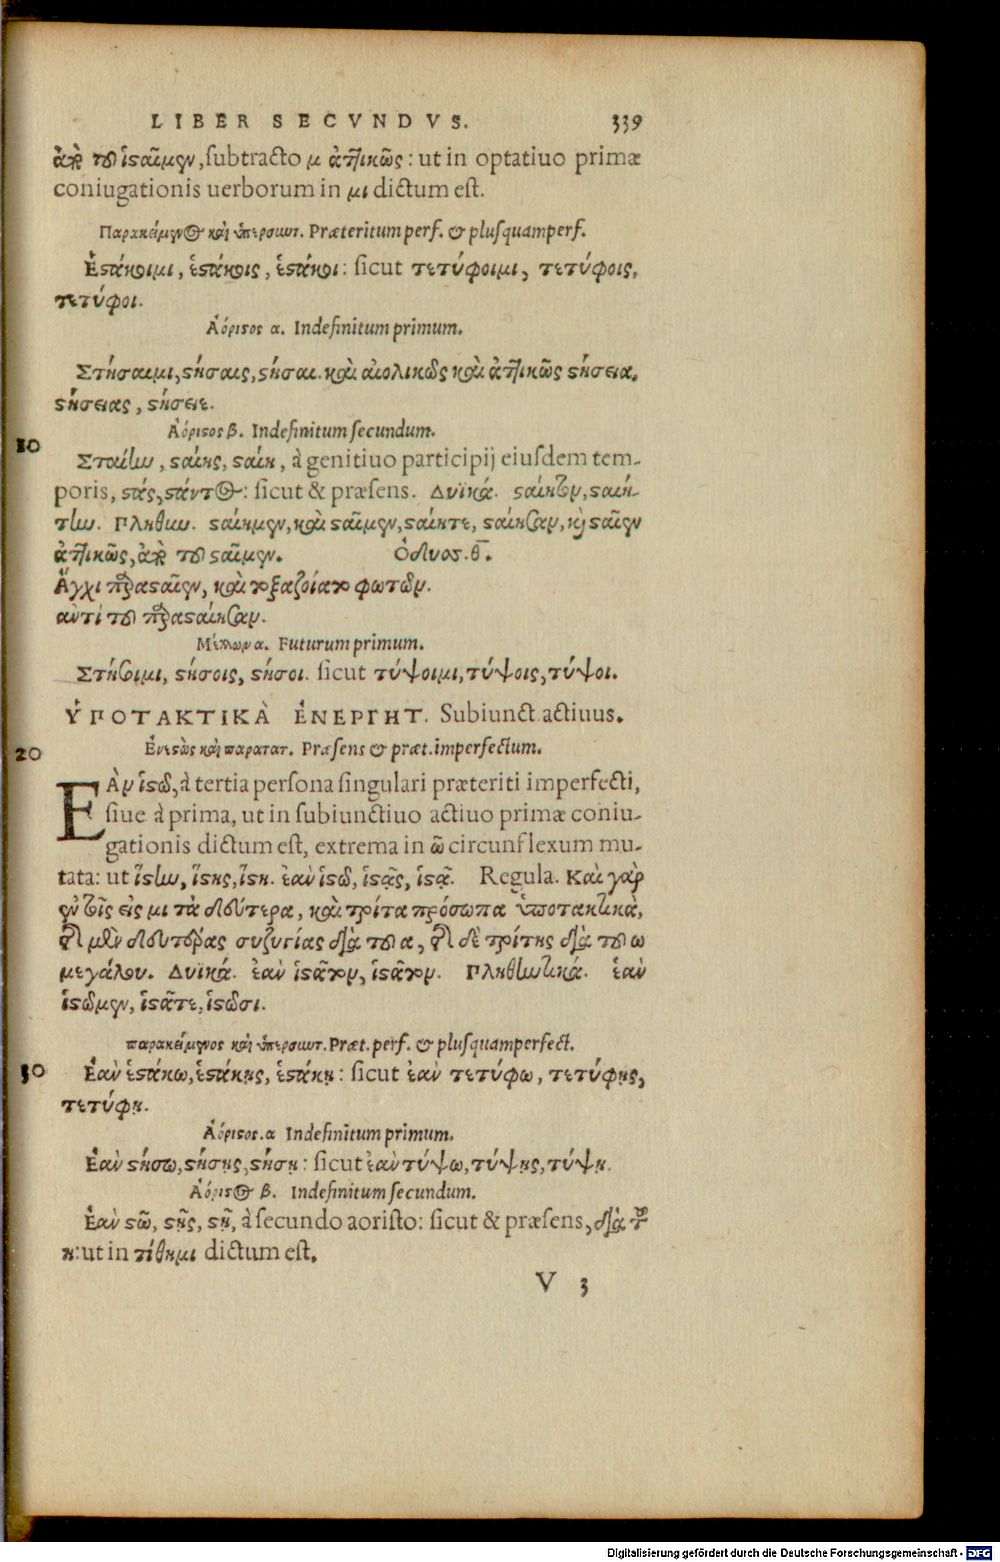 LIBER SECVNDVS. 339
ἀπὸ τοῦ ἱσταῖμεν, subtracto μ ἀττικῶς: ut in optatiuo primæ
coniugationis uerborum in μι dictum est.
Παρακείμενος καὶ ὑπερσυντ. Præteritum perf. & plusquamperf.
Ἑστάκοιμι, ἑστάκοις, ἑστάκοι: sicut τετύφοιμι, τετύφοις,
τετύφοι.
Ἀόριστος α. Indefinitum primum.
Στήσαιμι, στήσαις, στήσαι. καὶ αἰολικῶς καὶ ἀττικῶς στήσεια,
στήσειας, στήσειε.
Ἀόριστος β. Indefinitum secundum.
10
Σταίην, σταίης, σταίη, à genitiuo participij eiusdem tem-
poris, στάς, στάντος: sicut & præsens. Δυϊκά. σταίητον, σταιή-
την. Πληθυν. σταίημεν, καὶ σταῖμεν, σταίητε, σταίησαν, καὶ σταῖεν
ἀττικῶς, ἀπὸ τοῦ σταῖμεν. Ὀδυσσ. θ.
Ἄγχι παρασταῖεν, καὶ τοξαζοίατο φωτῶν.
ἀντὶ τοῦ παρασταίησαν.
Μέλλων α. Futurum primum.
Στήσοιμι, στήσοις, στήσοι. sicut τύψοιμι, τύψοις, τύψοι.
ὙΠΟΤΑΚΤΙΚᾺ ἘΝΕΡΓΗΤ. Subiunct. actiuus.
20
Ἐνεστὼς καὶ παρατατ. Præsens & præt. imperfectum.
ἘΑν ἱστῶ, à tertia persona singulari præteriti imperfecti,
siue à prima, ut in subiunctiuo actiuo primæ coniu-
gationis dictum est, extrema in ῶ circunflexum mu-
tata: ut ἵστην, ἵστης, ἵστη. ἐὰν ἱστῶ, ἱστᾷς, ἱστᾷ. Regula. Καὶ γὰρ
ἐν τοῖς εἰς μι τὰ δεύτερα, καὶ τρίτα πρόσωπα ὑποτακτικὰ,
ἐπὶ μὲν δευτέρας συζυγίας διὰ τοῦ α, ἐπὶ δὲ τρίτης διὰ τοῦ ω
μεγάλου. Δυϊκά. ἐὰν ἱστᾶτον, ἱστᾶτον. Πληθυντικά. ἐὰν
ἱστῶμεν, ἱστᾶτε, ἱστῶσι.
παρακείμενος καὶ ὑπερσυντ. Præt. perf. & plusquamperfect.
30
Ἐὰν ἑστάκω, ἑστάκῃς, ἑστάκῃ: sicut ἐὰν τετύφω, τετύφῃς,
τετύφῃ.
Ἀόριστος. α Indefinitum primum.
Ἐὰν στήσω, στήσῃς, στήσῃ: sicut ἐὰν τύψω, τύψῃς, τύψῃ.
Ἀόριστος β. Indefinitum secundum.
Ἐὰν στῶ, στῇς, στῇ, à secundo aoristo: sicut & præsens, διὰ τοῦ
η: ut in τίθημι dictum est.
V 3
Digitalisierung gefördert durch die Deutsche Forschungsgemeinschaft - DFG